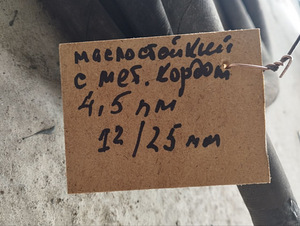 маслостойкий
с мет. кордом
4,5 пм
12/25 мм